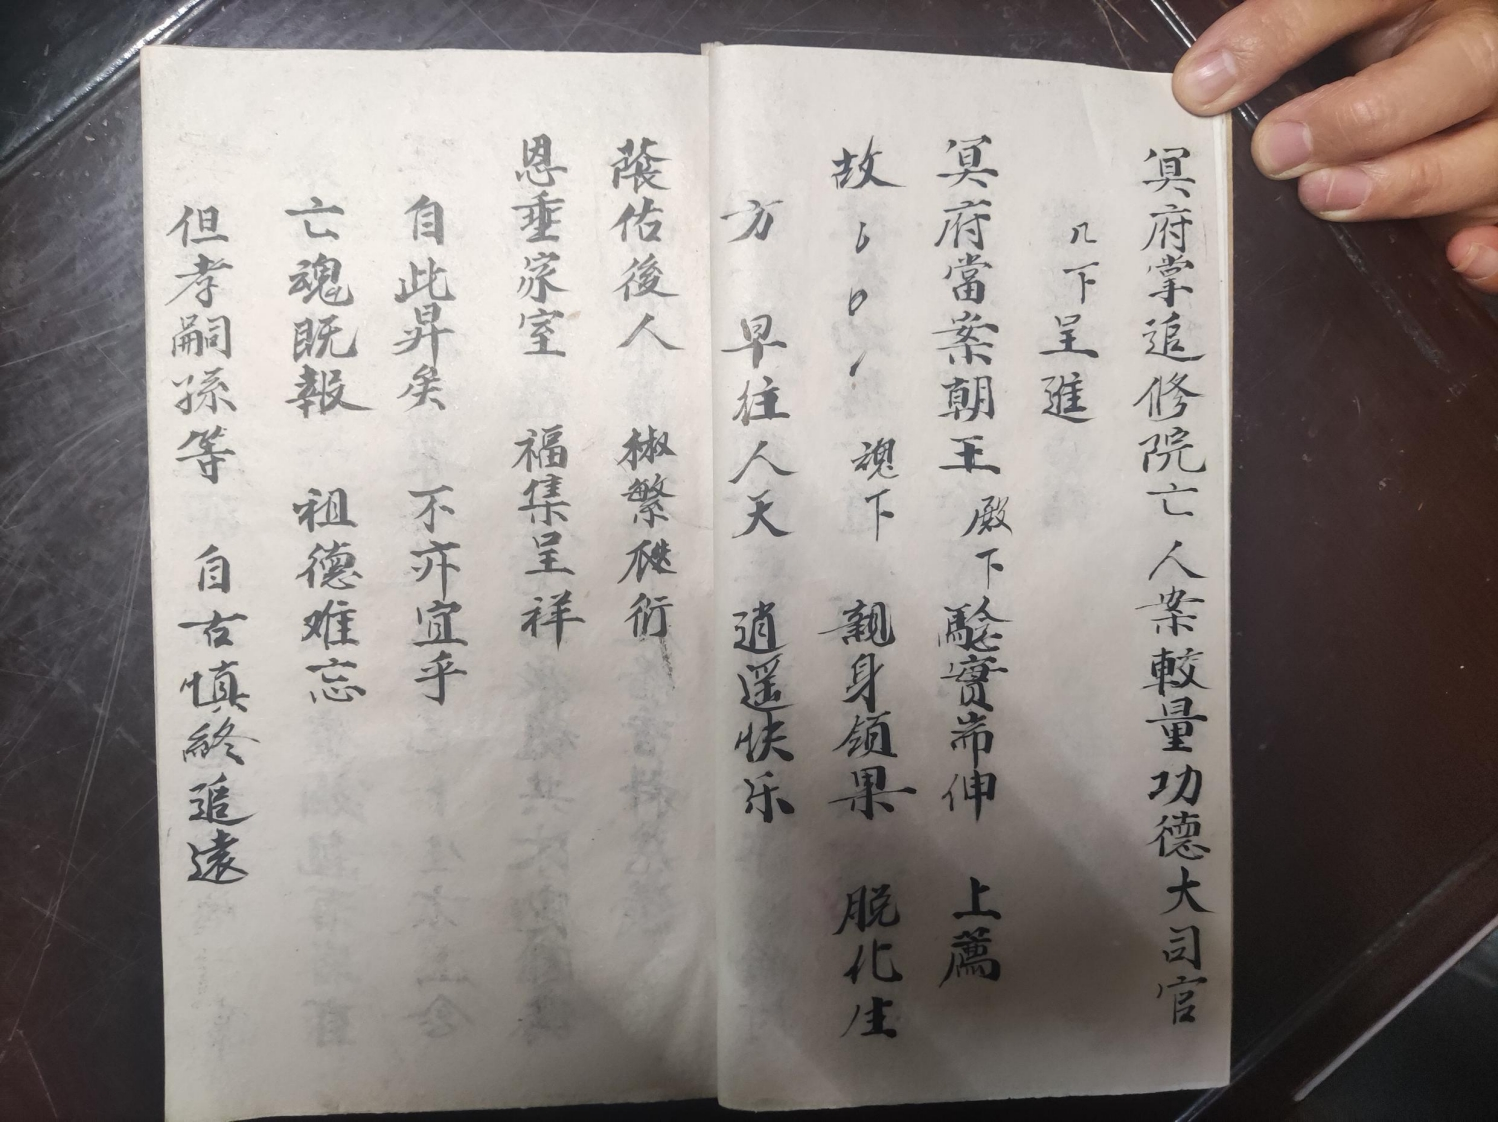 冥府掌追修院亡人案較量功德大司官
几下呈進
冥府當案朝王殿下驗實耑伸 上薦
故 魂下 親身領果 脱化生
方 早往人天 逍遥快乐
蔭佑後人 椒繁衍
恩垂家室 福集呈祥
自此昇矣 不亦宜乎
亡魂既報 祖德难忘
但孝嗣孫等 自古慎終追遠